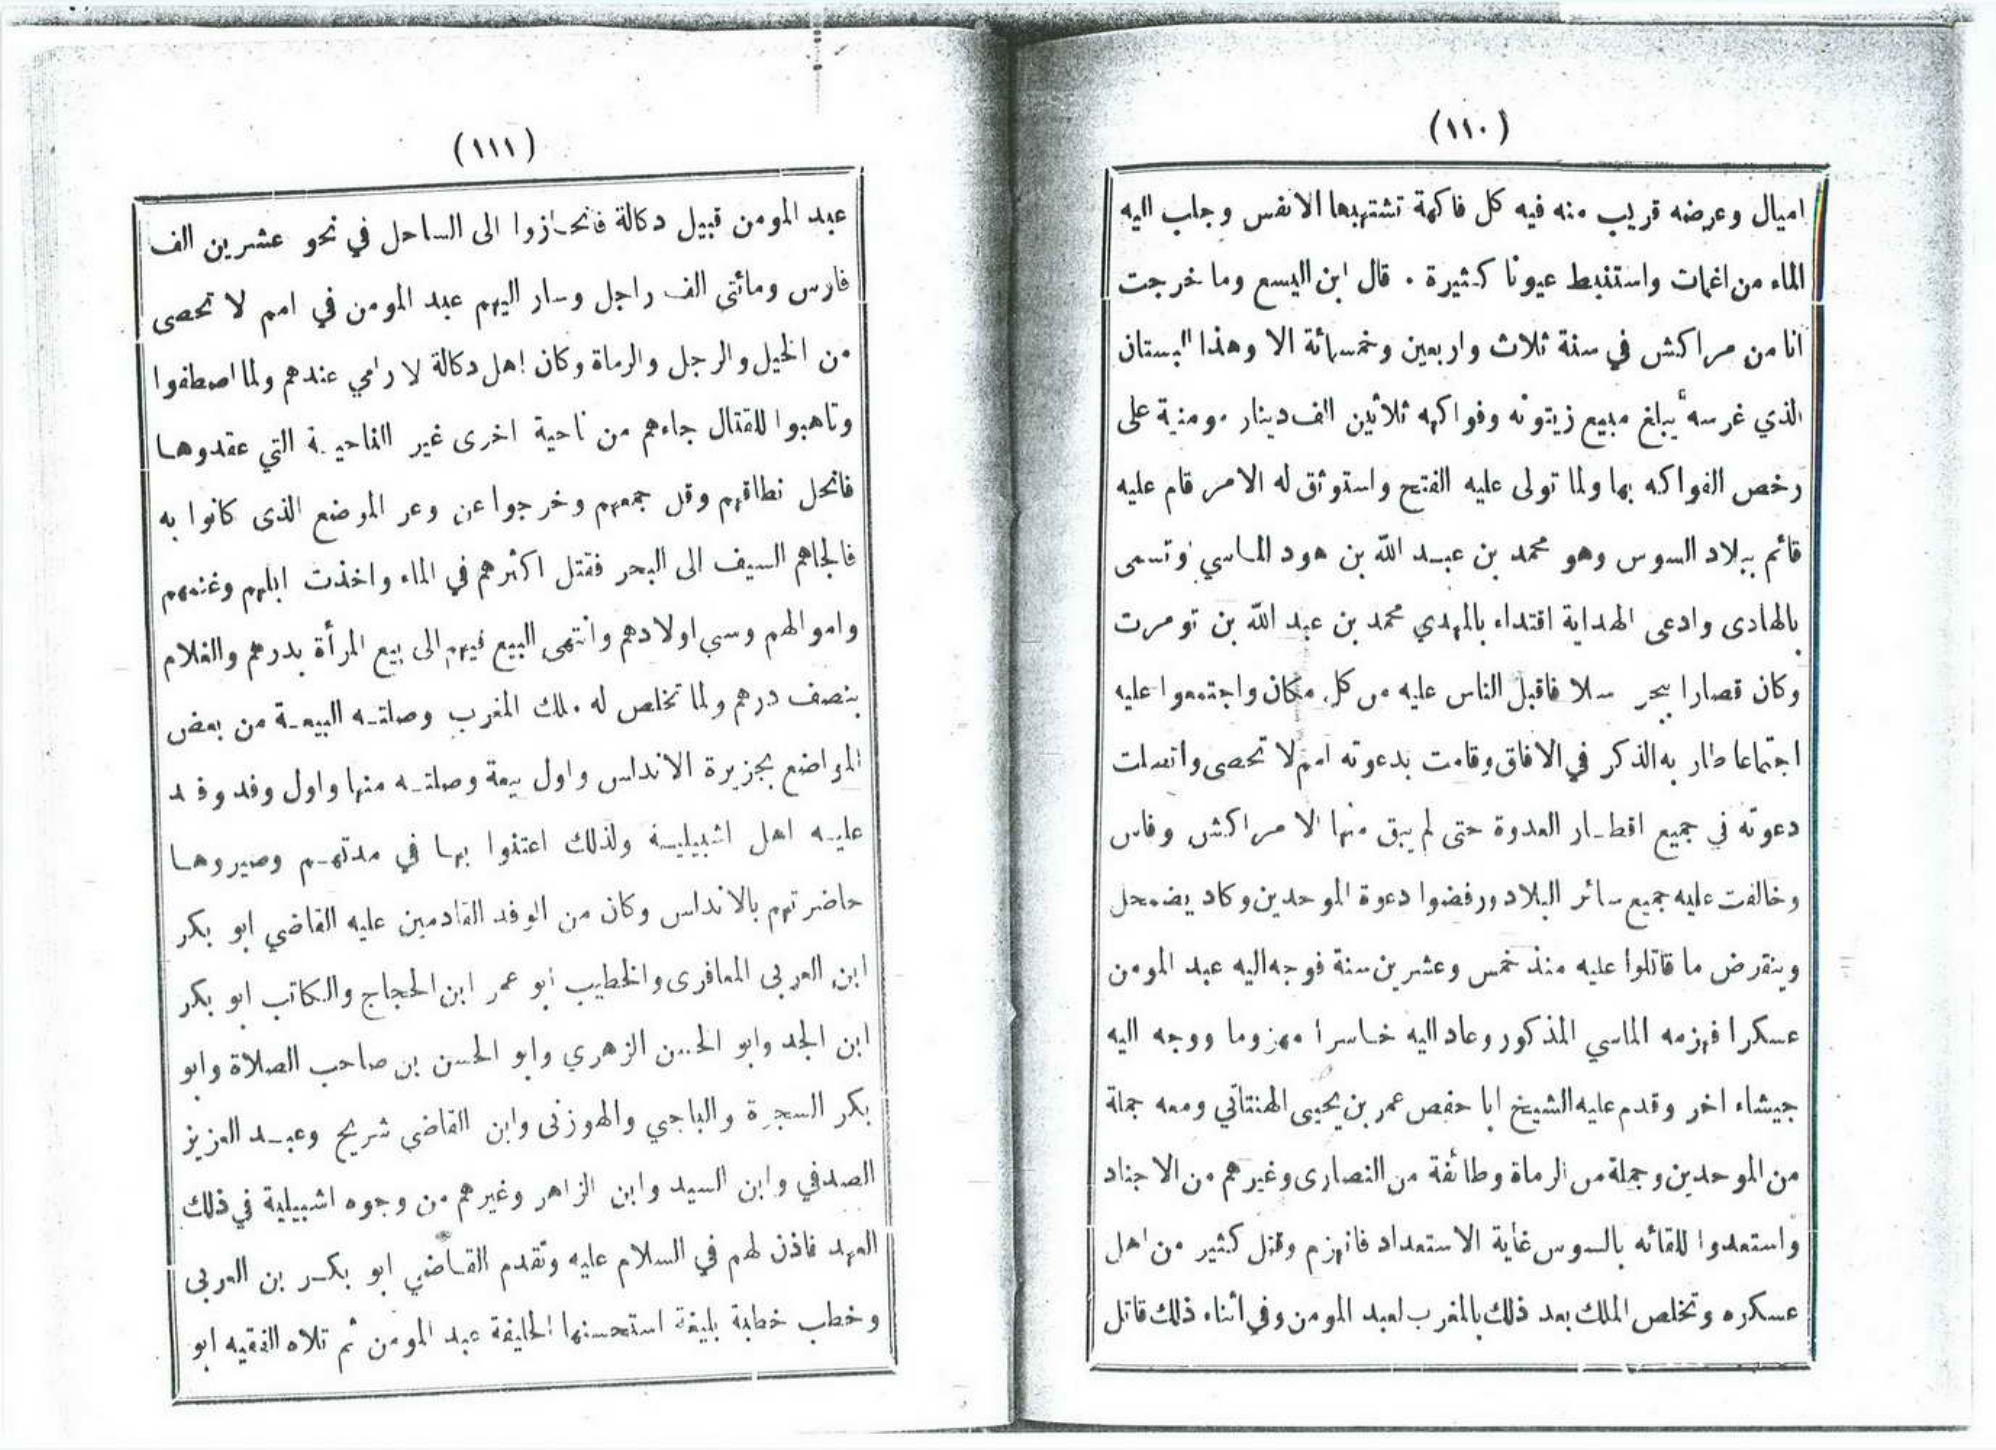 (١١٠)
اميال وعرضه قريب منه فيه كل فاكهة تشتهيها الانفس وجلب اليه
الماء من اغمات واستنبط عيونا كثيرة . قال ابن اليسع وما خرجت
انا من مراكش في سنة ثلاث واربعين وخمسمائة الا وهذا البستان
الذي غرسه يبلغ مبيع زيتونه وفواكهه ثلاثين الف دينار مومنية على
رخص الفواكه بها ولما تولى عليه الفتح واستوثق له الامر قام عليه
قائم ببلاد السوس وهو محمد بن عبد الله بن هود الماسي وتسمى
بالهادى وادعى الهداية اقتداء بالمهدي محمد بن عبد الله بن تومرت
وكان قصارا ببحر سلا فاقبل الناس عليه من كل مكان واجتمعوا عليه
اجتماعا طار به الذكر في الافاق وقامت بدعوته امم لا تحصى واتصلت
دعوته في جميع اقطار العدوة حتى لم يبق منها الا مراكش وفاس
وخالفت عليه جميع سائر البلاد ورفضوا دعوة الموحدين وكاد يضمحل
وينقرض ما قاتلوا عليه منذ خمس وعشرين سنة فوجه اليه عبد المومن
عسكرا فهزمه الماسي المذكور وعاد اليه خاسرا مهزوما ووجه اليه
جيشاء اخر وقدم عليه الشيخ ابا حفص عمر بن يحيى الهنتاتي ومعه جملة
من الموحدين وجملة من الرماة وطائفة من النصارى وغيرهم من الاجناد
واستعدوا للقائه بالسوس غاية الاستعداد فانهزم وقتل كثير من اهل
عسكره وتخلص الملك بعد ذلك بالمغرب لعبد المومن وفي اثناء ذلك قاتل
(١١١)
عبد المومن قبيل دكالة فانحازوا الى الساحل في نحو عشرين الف
فارس ومائتى الف راجل وسار اليهم عبد المومن في امم لا تحصى
من الخيل والرجل والرماة وكان اهل دكالة لا رامي عندهم ولما اصطفوا
وتاهبوا للقتال جاءهم من ناحية اخرى غير الناحية التي عقدوها
فانحل نطاقهم وفل جمعهم وخرجوا عن وعر الموضع الذى كانوا به
فالجاهم السيف الى البحر فقتل اكثرهم في الماء واخذت ابلهم وغنمهم
واموالهم وسبي اولادهم وانتهى البيع فيهم الى بيع المرأة بدرهم والغلام
بنصف درهم ولما تخلص له ملك المغرب وصلته البيعة من بعض
المواضع بجزيرة الاندلس واول بيعة وصلته منها واول وفد وفد
عليه اهل اشبيلية ولذلك اعتنوا بها في مدتهم وصيروها
حاضرتهم بالاندلس وكان من الوفد القادمين عليه القاضي ابو بكر
ابن العربى المعافرى والخطيب ابو عمر ابن الحجاج والكاتب ابو بكر
ابن الجد وابو الحسن الزهري وابو الحسن بن صاحب الصلاة وابو
بكر السجرة والباجي والهوزنى وابن القاضي شريح وعبد العزيز
الصدفي وابن السيد وابن الزاهر وغيرهم من وجوه اشبيلية في ذلك
العهد فاذن لهم في السلام عليه وتقدم القاضي ابو بكر بن العربى
وخطب خطبة بليغة استحسنها الخليفة عبد المومن ثم تلاه الفقيه ابو